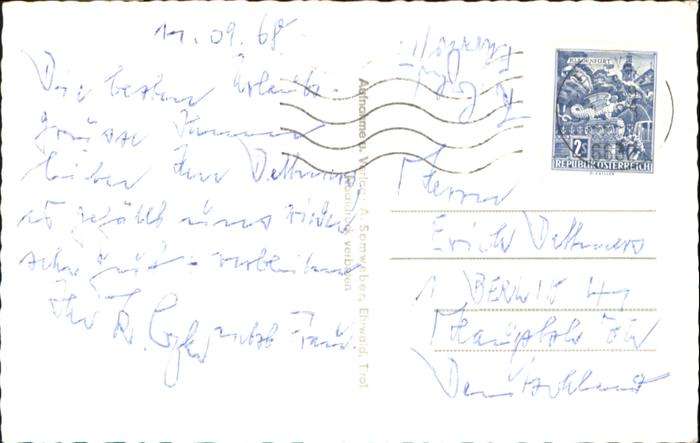 11.09.68
Die besten Urlaubs-
grüsse
lieber Herr Dettmers
es gefällt uns wieder
sehr gut - verbleiben
Ihr nebst Frau.
Aufnahme u. Verlag: A. Somweber, Ehwald, Tirol
verboten
KLAGENFURT
2S
REPUBLIK ÖSTERREICH
Herrn
Erich Dettmers
1 BERLIN 41
Hauptstr
Deutschland